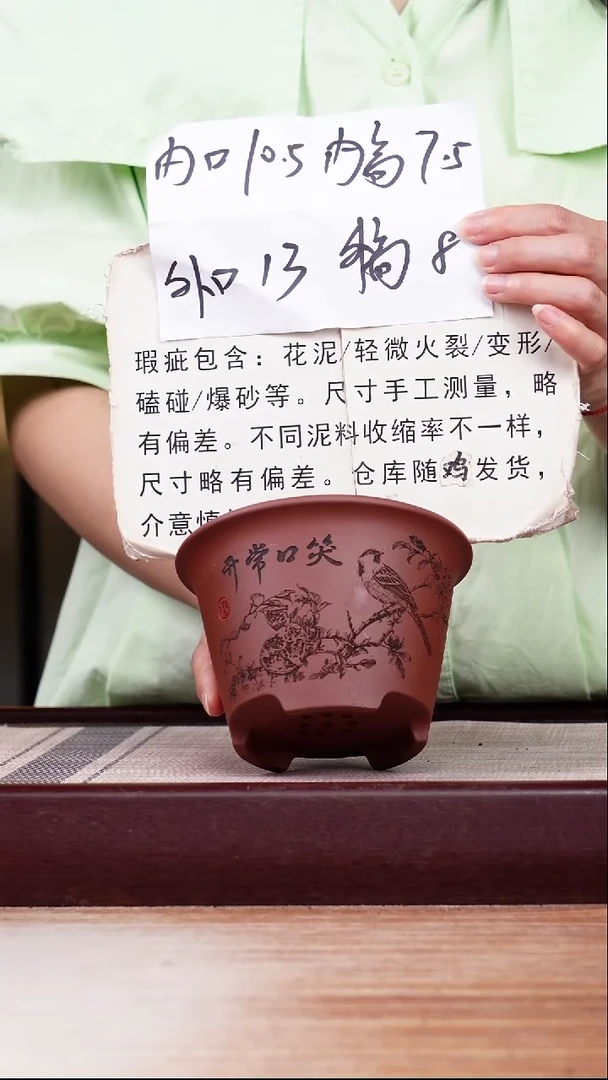 内口10.5 内高7.5
外口13 外高8
瑕疵包含：花泥/轻微火裂/变形/
磕碰/爆砂等。尺寸手工测量，略
有偏差。不同泥料收缩率不一样，
尺寸略有偏差。仓库随鸡发货，
介意慎
笑口常开